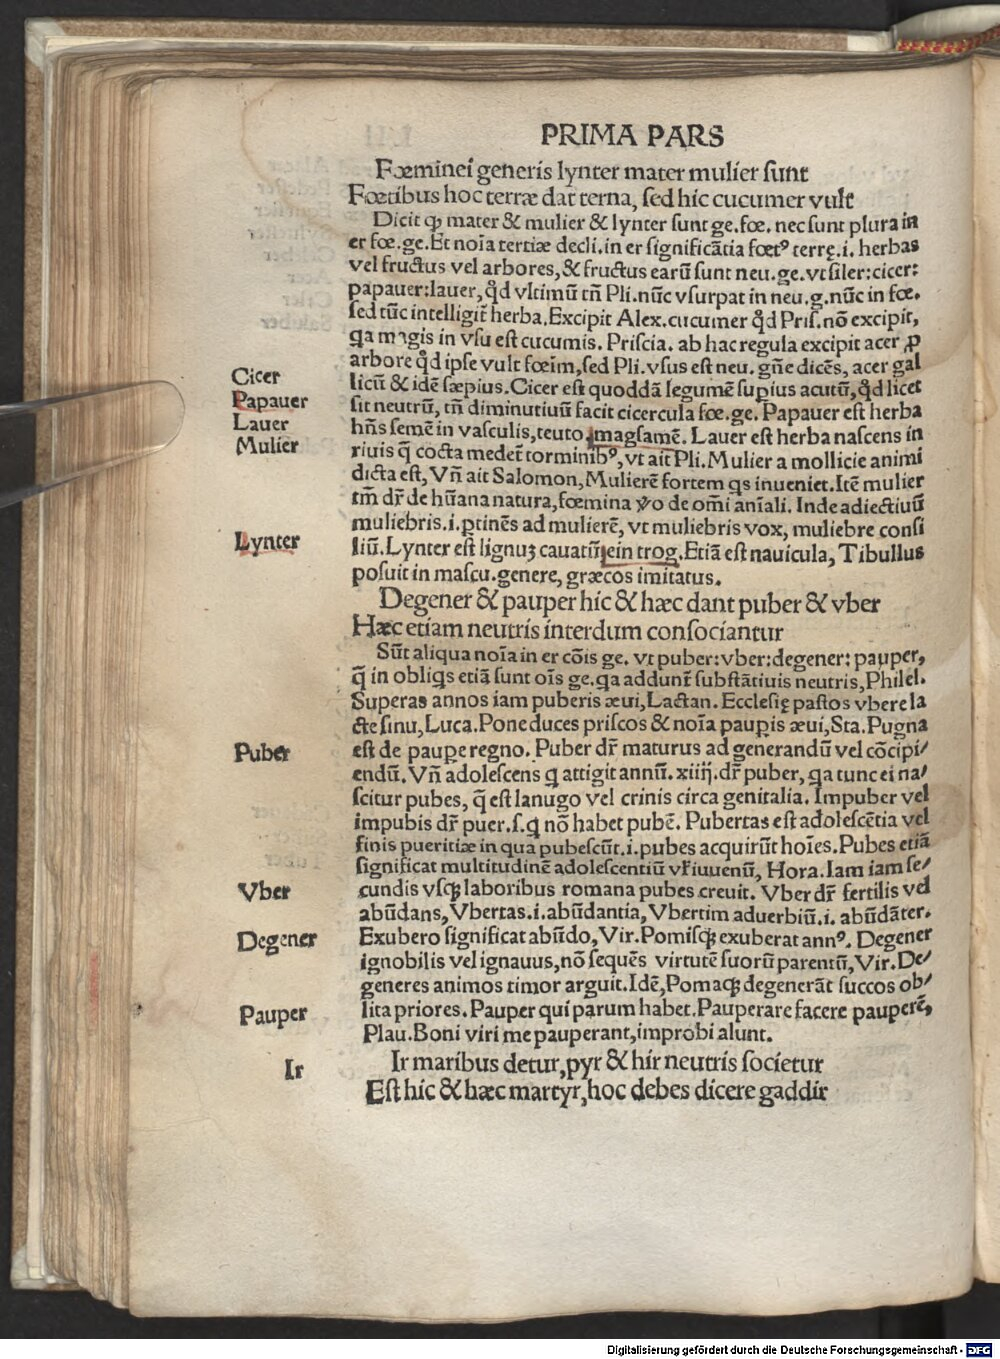 PRIMA PARS
Fœminei generis lynter mater mulier sunt
Fœtibus hoc terræ dat terna, sed hic cucumer vult
Dicit ꝙ mater & mulier & lynter sunt ge.fœ. nec sunt plura in
er fœ.ge.Et noīa tertiæ decli.in er significātia fœtꝰ terrę.i. herbas
vel fructus vel arbores,& fructus earū sunt neu.ge.vt siler:cicer:
papauer:lauer,qd̄ vltimū tñ Pli.nūc vsurpat in neu.g.nūc in fœ.
sed tūc intelligit̄ herba.Excipit Alex.cucumer qd̄ Pris.nō excipit,
qa magis in vsu est cucumis. Priscia. ab hac regula excipit acer ꝓ
arbore qd̄ ipse vult fœim̄,sed Pli.vsus est neu. gñe dicēs, acer gal
Cicer
licū & idē sæpius.Cicer est quoddā legumē supius acutū,qd̄ licet
Papauer
sit neutrū, tñ diminutiuū facit cicercula fœ.ge. Papauer est herba
Lauer
hñs semē in vasculis,teuto.magsamē. Lauer est herba nascens in
Mulier
riuis q̄ cocta medet̄ torminibꝰ,vt ait Pli.Mulier a mollicie animi
dicta est, Vñ ait Salomon,Mulierē fortem qs inueniet.Itē mulier
tm̄ dr̄ de hūana natura,fœmina ꝟo de om̄i aīali. Inde adiectiuū
muliebris.i.ꝑtinēs ad mulierē, vt muliebris vox, muliebre consi
Lynter
liū.Lynter est lignuꝫ cauatū,ein trog.Etiā est nauicula, Tibullus
posuit in mascu.genere, græcos imitatus.
Degener & pauper hic & hæc dant puber & vber
Hæc etiam neutris interdum consociantur
Sūt aliqua noīa in er cōis ge. vt puber:vber:degener: pauper,
q̄ in obliqs etiā sunt oīs ge.qa addunt̄ substātiuis neutris, Philel.
Superas annos iam puberis æui, Lactan. Ecclesię pastos vbere la
cte sinu, Luca.Pone duces priscos & noīa pauꝑis æui,Sta.Pugna
Puber
est de pauꝑe regno. Puber dr̄ maturus ad generandū vel cōcipi/
endū. Vñ adolescens q attigit annū. xiiij. dr̄ puber, qa tunc ei na/
scitur pubes, q̄ est lanugo vel crinis circa genitalia. Impuber vel
impubis dr̄ puer.s.q nō habet pubē. Pubertas est adolescētia vel
finis pueritiæ in qua pubescūt.i.pubes acquirūt hoīes. Pubes etiā
significat multitudinē adolescentiū vł iuuenū, Hora. Iam iam se/
Vber
cundis vsqꝫ laboribus romana pubes creuit. Vber dr̄ fertilis vel
abūdans, Vbertas.i.abūdantia, Vbertim aduerbiū.i. abūdāter.
Degener
Exubero significat abūdo, Vir. Pomisqꝫ exuberat annꝰ. Degener
ignobilis vel ignauus,nō sequēs virtutē suorū parentū, Vir. De/
generes animos timor arguit. Idē, Pomaqꝫ degenerāt succos ob/
Pauper
lita priores. Pauper qui parum habet. Pauperare facere pauperē,
Plau. Boni viri me pauperant,improbi alunt.
Ir
Ir maribus detur,pyr & hir neutris societur
Est hic & hæc martyr,hoc debes dicere gaddir
Digitalisierung gefördert durch die Deutsche Forschungsgemeinschaft - DFG